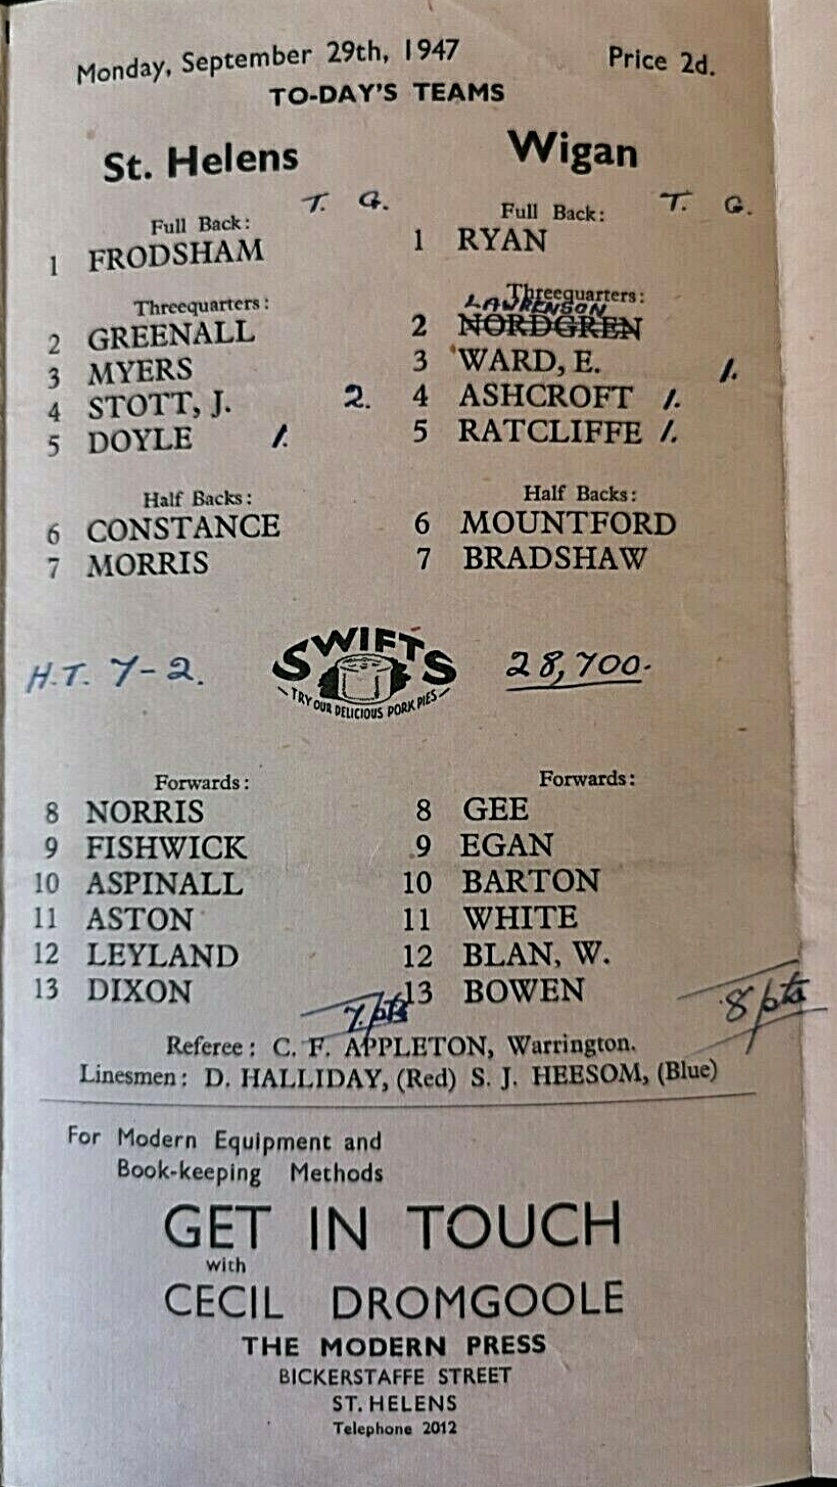 Monday, September 29th, 1947 Price 2d.
TO-DAY'S TEAMS
St. Helens Wigan
T. G. T. G.
Full Back: Full Back:
1 FRODSHAM 1 RYAN
Threequarters: Threequarters:
LAWRENSON
2 GREENALL 2 NORDGREN
3 MYERS 3 WARD, E. 1.
4 STOTT, J. 2. 4 ASHCROFT 1.
5 DOYLE 1. 5 RATCLIFFE 1.
Half Backs: Half Backs:
6 CONSTANCE 6 MOUNTFORD
7 MORRIS 7 BRADSHAW
H.T. 7-2. SWIFTS 28,700.
TRY OUR DELICIOUS PORK PIES
Forwards: Forwards:
8 NORRIS 8 GEE
9 FISHWICK 9 EGAN
10 ASPINALL 10 BARTON
11 ASTON 11 WHITE
12 LEYLAND 12 BLAN, W.
13 DIXON 13 BOWEN
7 pts 8 pts
Referee: C. F. APPLETON, Warrington.
Linesmen: D. HALLIDAY, (Red) S. J. HEESOM, (Blue)
For Modern Equipment and
Book-keeping Methods
GET IN TOUCH
with
CECIL DROMGOOLE
THE MODERN PRESS
BICKERSTAFFE STREET
ST. HELENS
Telephone 2012